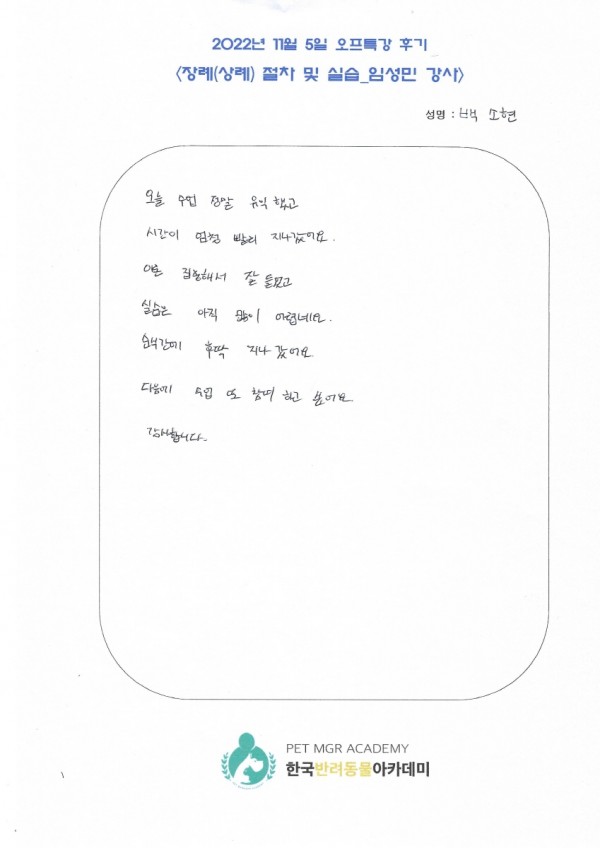 2022년 11월 5일 오프특강 후기
<장례(상례) 절차 및 실습_임성민 강사>
성명 : 백 소현
오늘 수업 정말 유익 했고
시간이 엄청 빨리 지나갔어요.
이론 집중해서 잘 들었고
실습은 아직 많이 어렵네요.
순식간에 후딱 지나 갔어요
다음에 수업 또 참여 하고 싶어요
감사합니다.
PET MGR ACADEMY
한국반려동물아카데미